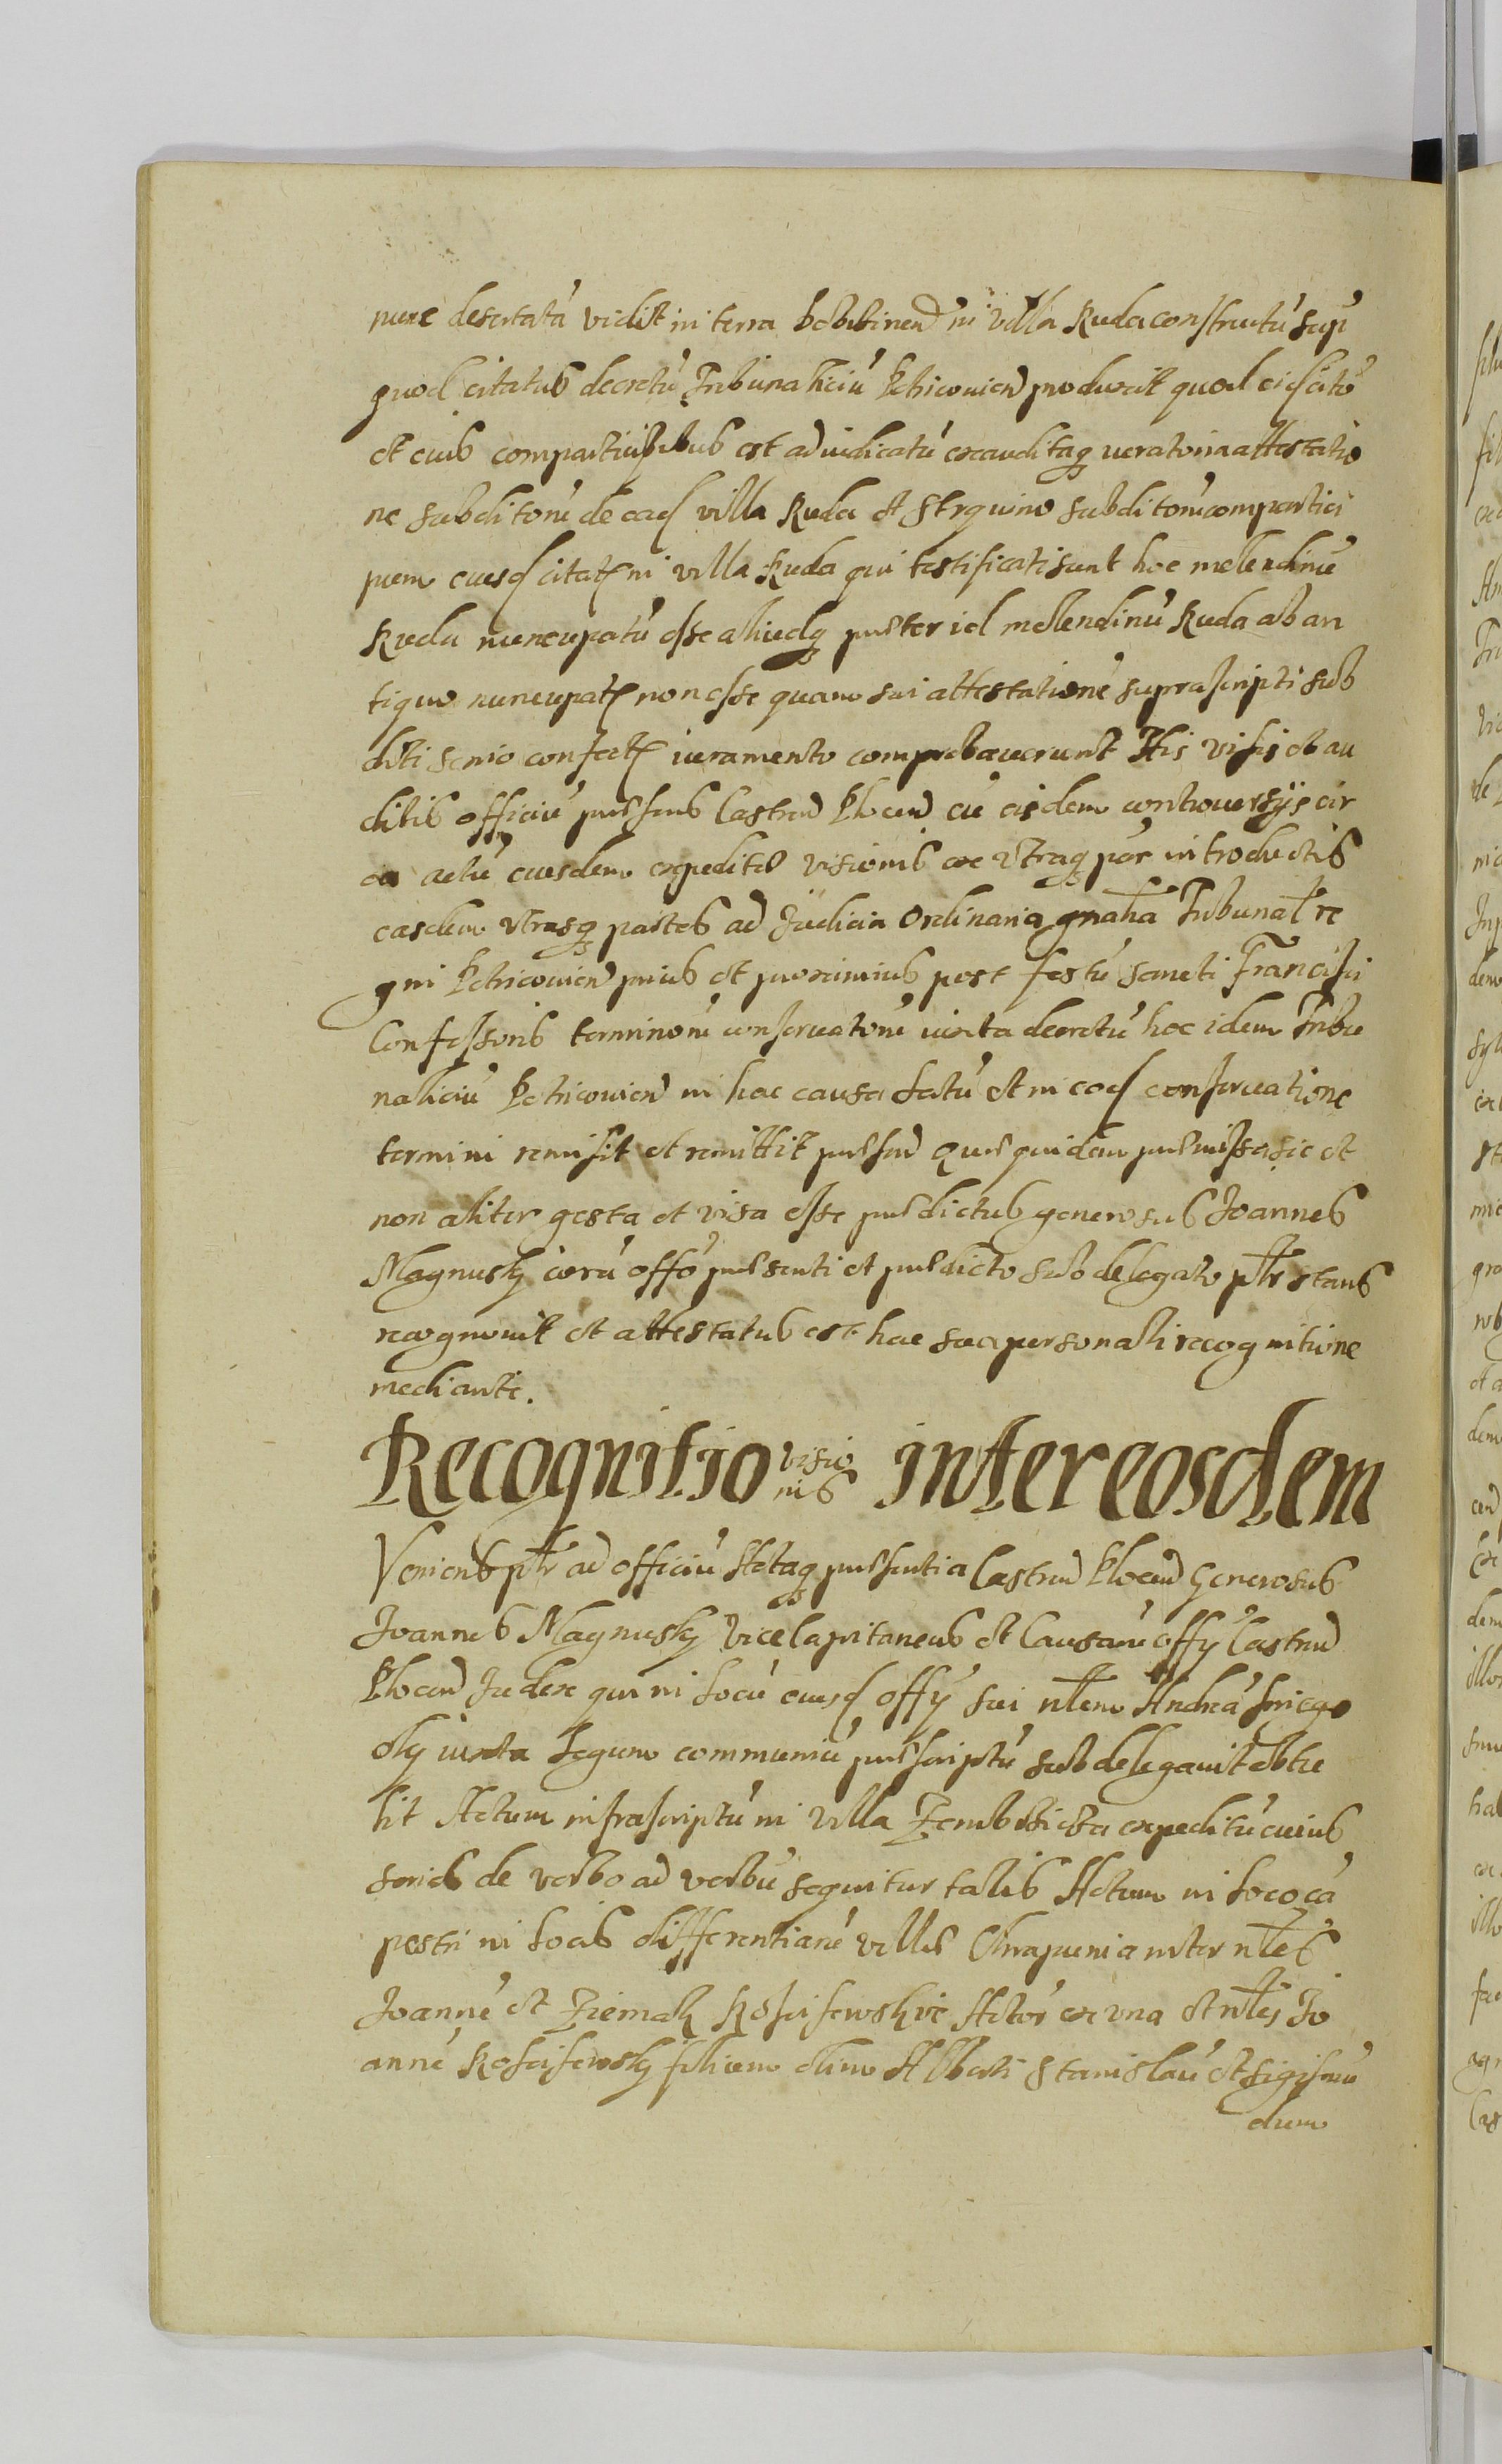 nunc desertatũ vidit in terra Bobitinen̄ in villa Ruda constructũ supr
quod citatus decretũ Tribunaliciũ Petricovien̄ produxit quod eid citto
et eius comparticipibus est adiudicatũ exauditaq iuratoria attestatio
ne subditorũ de ead villa Ruda et Strzquino subditorũ compartici
pum eiusd citati in villa Ruda qui testificati sunt hoc molendinũ
Ruda nuncupatũ esse aliudq præter id mollendinũ Ruda ab an
tiquo nuncupatū non esse quam sui attestationẽ suprascripti sub
diti senio confecti iuramento comprobaverunt His visis et au
ditis officiũ præsens Castren̄ Plocen̄ cũ eisdem controversijs cir
ca actũ eiusdem expeditæ visionis ex vtraq par introductis
easdem vtrasq partes ad Judicia Ordinaria gnalia Tribunal re
gni Petricovien̄ prius et proximius post festũ Sancti Francisci
Confessoris terminorũ conservatorũ iuxta decretũ hoc idem Tribu
naliciũ Petricovien̄ in hac causa latũ et in ead conservatione
termini remisit et remittit præsen̄ Quæ quidem præmissa sic et
non aliter gesta et visa esse prædictus generosus Joannes
Magnusky corã offo præsenti et prædicto subdelegato pltr stans
recognovit et attestatus est hac sua personali recognitione
mediante.
Recognitio visio inter eosdem
nis
Veniens pltr ad officiũ Actaq præsentia Castren̄ Plocen̄ Generosus
Joannes Magnusky Vice Capitaneus et Causarũ offy Castren̄
Plocen̄ Judex qui in locũ eiusd offy sui nlem Andreã Sniego
cky iuxta legum communiũ præscriptũ subdelegavit obtu
lit Actum infrascriptũ in villa expeditũ cuius
series de verbo ad verbũ sequitur talis Actum in loco cã
pestri in locis differentiarũ villæ Chrapunia inter nles
Joannẽ et Ziemak Koscisewskie Actor ex vna et nles Jo
annẽ Koscisewsky filium olim Alberti Stanislaũ et Sigismũ
dum